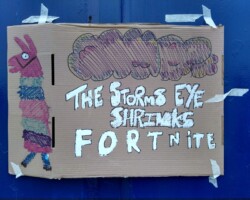 THE STORMS EYE
SHRINKS
FORTNITE